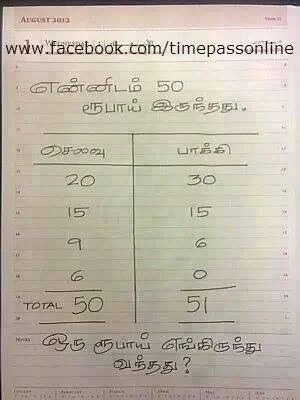 AUGUST 2012
www.facebook.com/timepassonline
WEDNESDAY
என்னிடம் 50
ரூபாய் இருந்தது.
செலவு பாக்கி
20 30
15 15
9 6
6 0
TOTAL 50 51
NOTES
ஒரு ரூபாய் எங்கிருந்து
வந்தது?